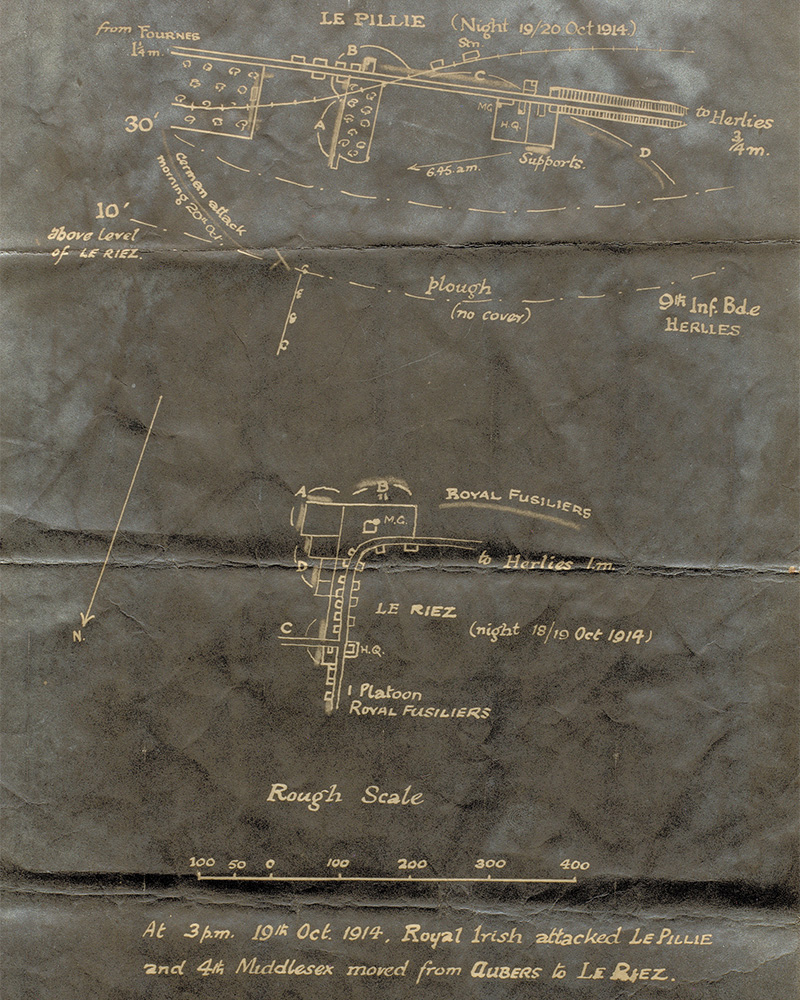 LE PILLIE (Night 19/20 Oct 1914)
from FOURNES
1¼ m.
B
Stn.
C
to Herlies
¾ m.
30'
A
MG
H.Q.
Supports.
6.45. a.m.
D
German attack
morning 20th Oct.
10'
above level
of LE RIEZ.
plough
(no cover)
9th Inf. Bde
HERLLES
A
B
ROYAL FUSILIERS
M.G.
D
to Herlies 1 m.
LE RIEZ
(night 18/19 Oct 1914)
N.
C
H.Q.
1 Platoon
ROYAL FUSILIERS
Rough Scale
100 50 0 100 200 300 400
At 3 p.m. 19th Oct. 1914, Royal Irish attacked LE PILLIE
and 4th Middlesex moved from AUBERS to LE RIEZ.